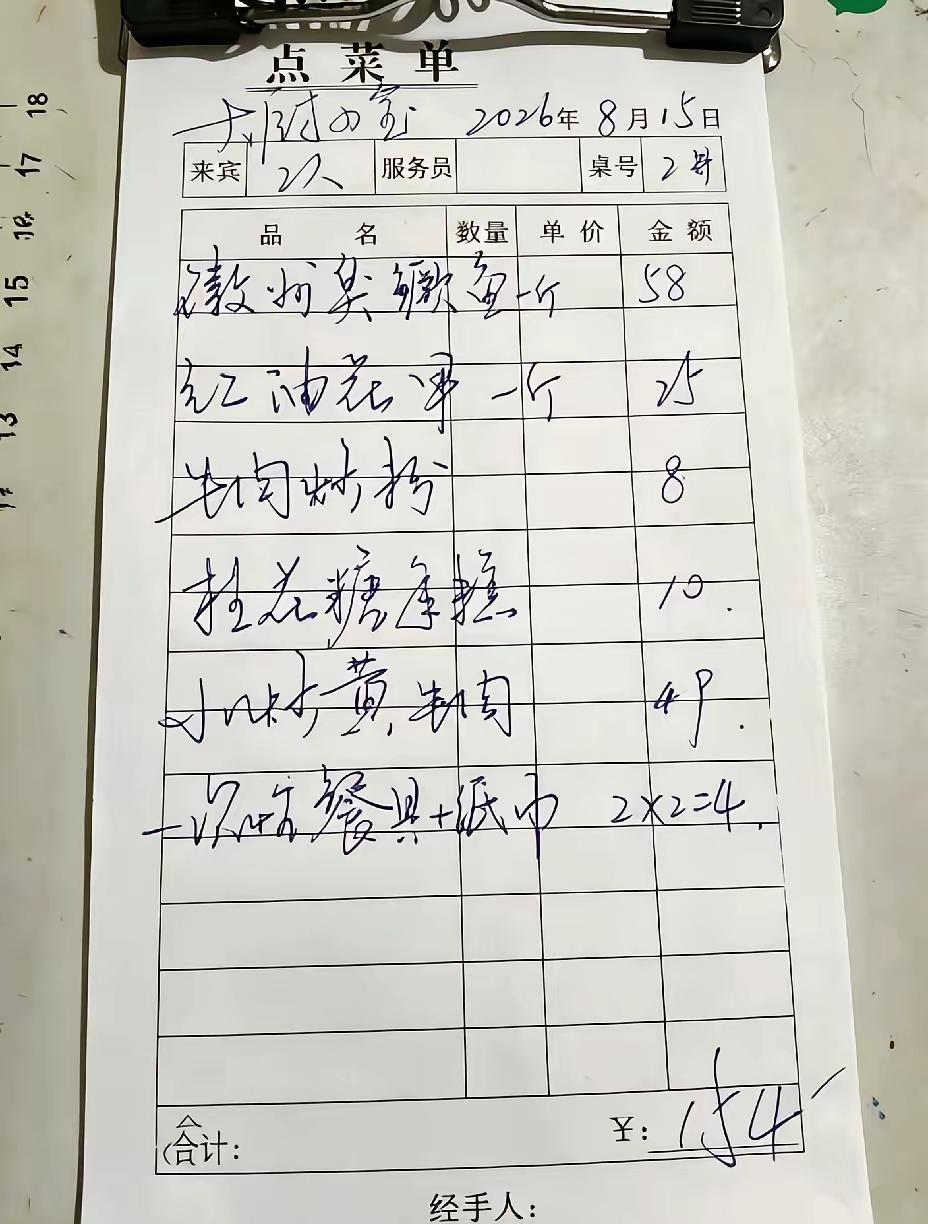 点菜单
大厨小宝 2026年8月15日
来宾 2人 服务员 桌号 2号
品名 数量 单价 金额
徽州臭鳜鱼 一斤 58
红油花甲 一斤 25
牛肉炒粉 8
桂花糖年糕 10.
小炒黄牛肉 49.
一次性餐具+纸巾 2×2=4.
合计: ¥: 154
经手人:
18
17
16
15
14
13